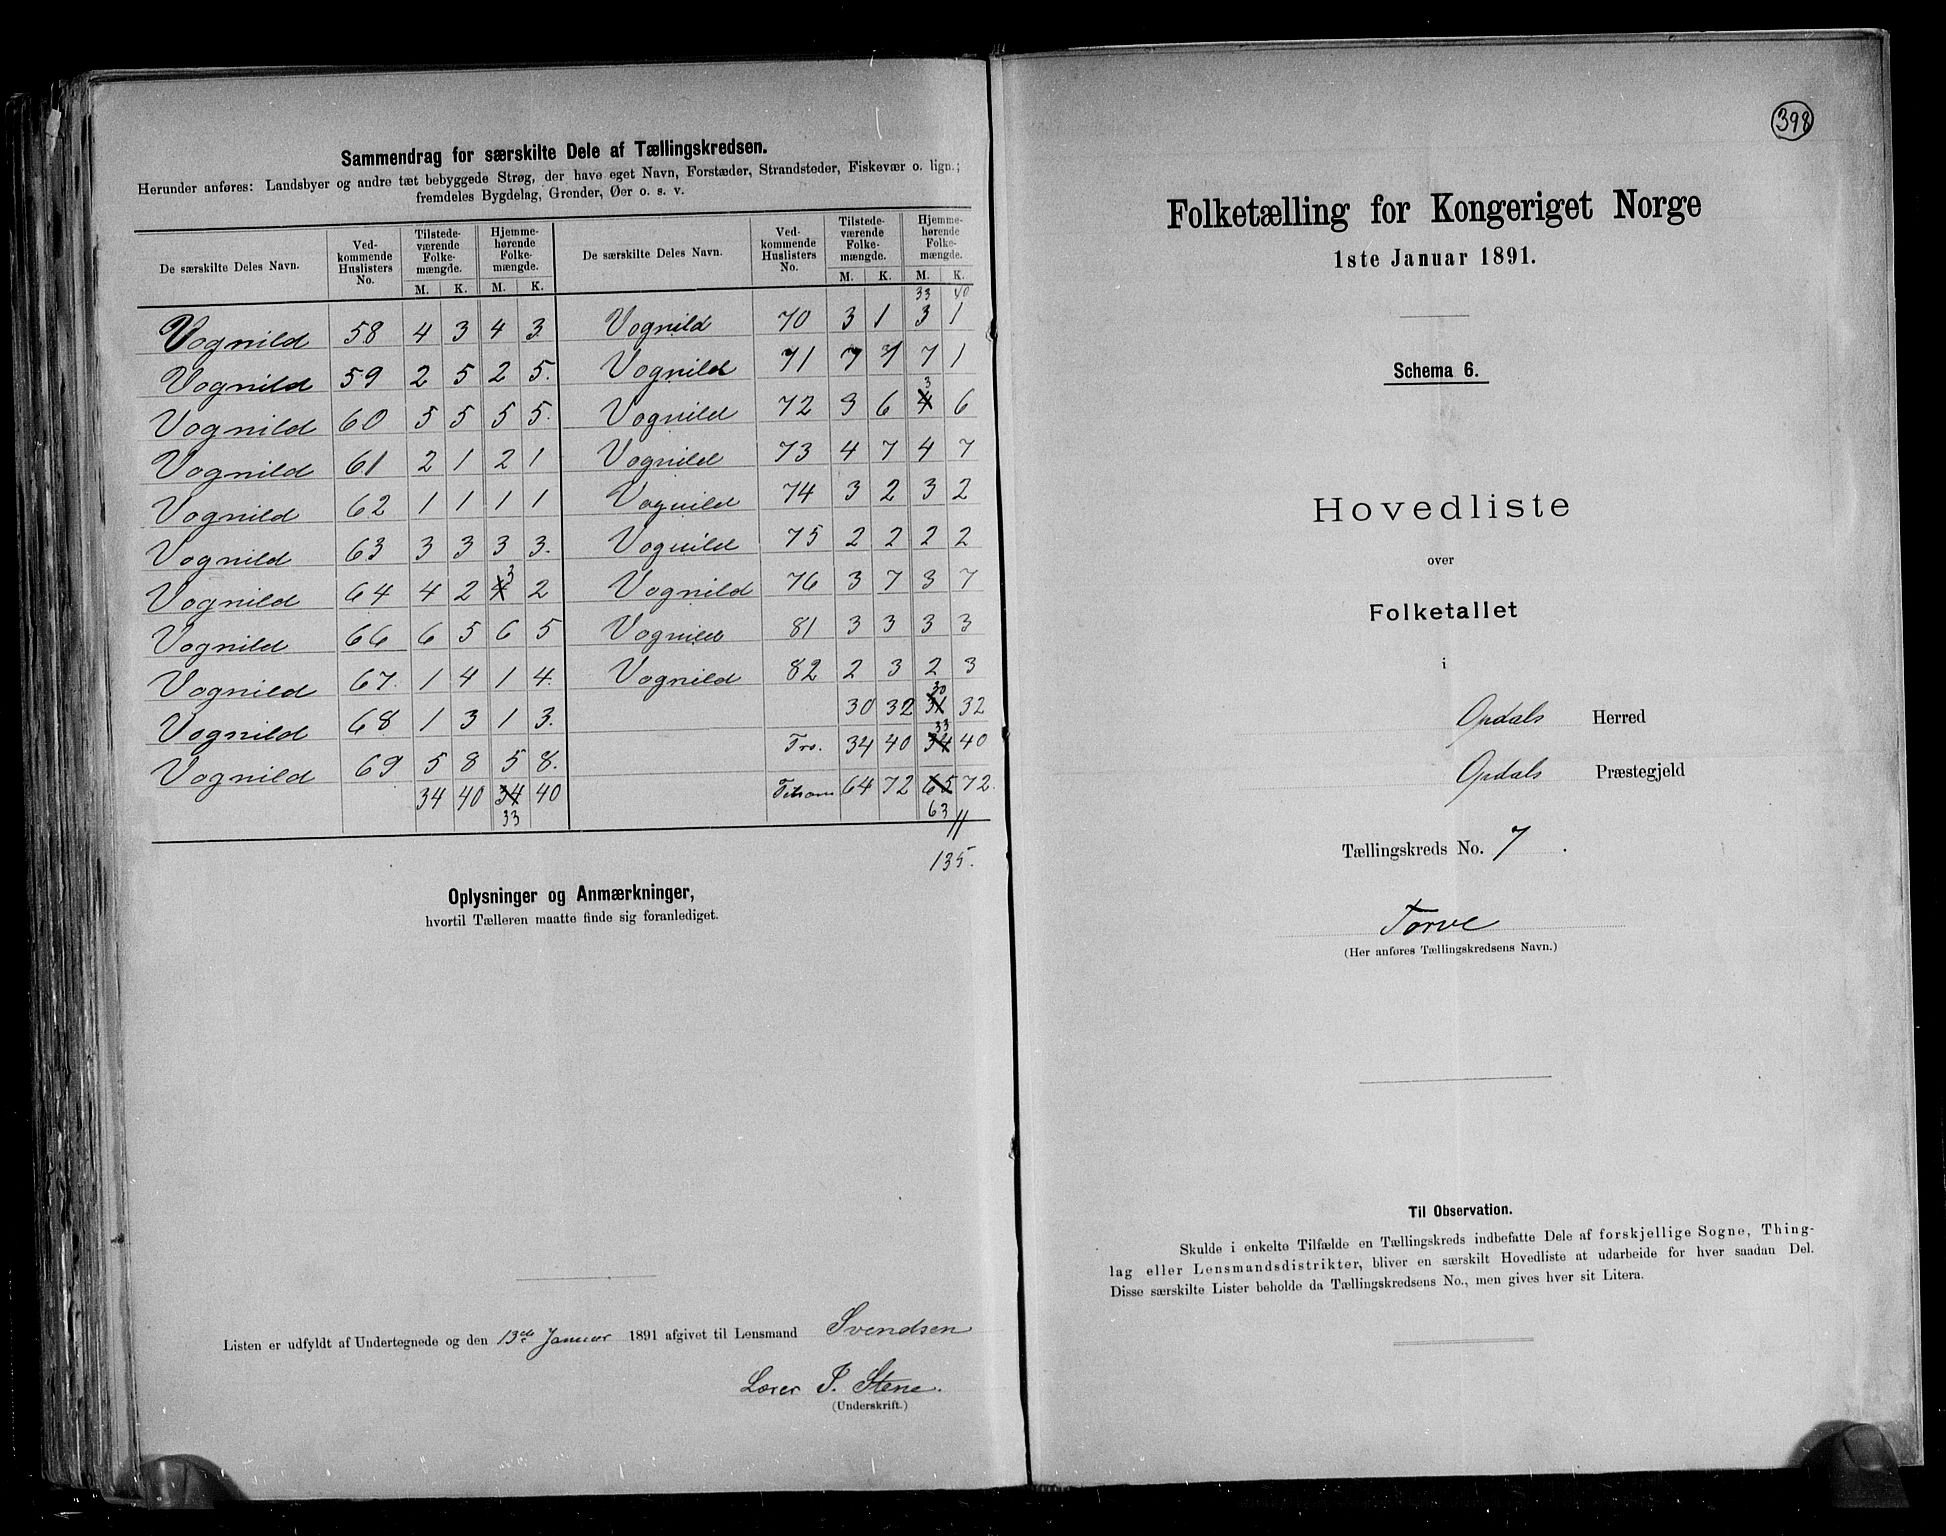 Sammendrag for særskilte Dele af Tællingskredsen.
Herunder anføres: Landsbyer og andre tæt bebyggede Strøg, der have eget Navn, Forstæder, Strandsteder, Fiskevær o. lign.;
fremdeles Bygdelag, Grender, Øer o. s. v.
De særskilte Deles Navn. Vedkommende Huslisters No. Tilstedeværende Folkemængde. M. K. Hjemmehørende Folkemængde. M. K.
De særskilte Deles Navn. Vedkommende Huslisters No. Tilstedeværende Folkemængde. M. K. Hjemmehørende Folkemængde. M. K.
33 40
Vognild 58 4 3 4 3 Vognild 70 3 1 3 1
Vognild 59 2 5 2 5. Vognild 71 7 7 7 1
Vognild 60 5 5 5 5. Vognild 72 3 6 4 3 6
Vognild 61 2 1 2 1 Vognild 73 4 7 4 7
Vognild 62 1 1 1 1 Vognild 74 3 2 3 2
Vognild 63 3 3 3 3. Vognild 75 2 2 2 2
Vognild 64 4 2 4 3 2 Vognild 76 3 7 3 7
Vognild 66 6 5 6 5 Vognild 81 3 3 3 3
Vognild 67. 1 4 1 4. Vognild 82 2 3 2 3
Vognild 68 1 3 1 3. 30 32 31 30 32
Vognild 69 5 8 5 8. Trs. 34 40 34 33 40
34 40 34 33 40 Tilsam 64 72 65 63 72.
135.
Oplysninger og Anmærkninger,
hvortil Tælleren maatte finde sig foranlediget.
Listen er udfyldt af Undertegnede og den 13de Januar 1891 afgivet til Lensmand Svendsen
Lærer I. Stene.
(Underskrift.)
398
Folketælling for Kongeriget Norge
1ste Januar 1891.
Schema 6.
Hovedliste
over
Folketallet
i
Opdals Herred
Opdals Præstegjeld
Tællingskreds No. 7.
Torve
(Her anføres Tællingskredsens Navn.)
Til Observation.
Skulde i enkelte Tilfælde en Tællingskreds indbefatte Dele af forskjellige Sogne, Thing-
lag eller Lensmandsdistrikter, bliver en særskilt Hovedliste at udarbeide for hver saadan Del.
Disse særskilte Lister beholde da Tællingskredsens No., men gives hver sit Litera.